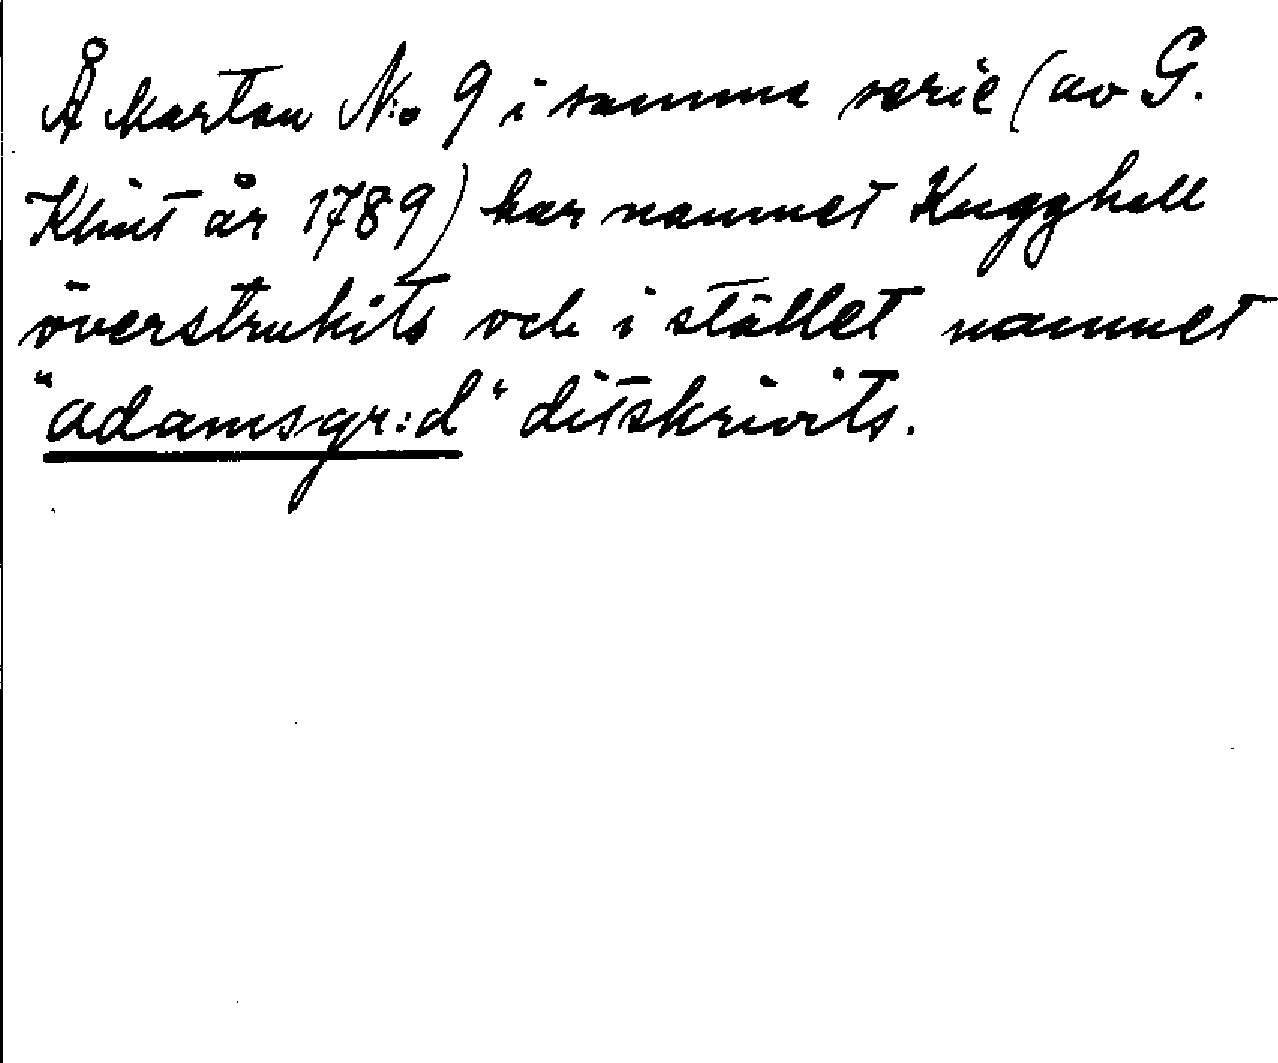 Å kartan N:o 9 i samma serie (av G.
Klint år 1789) har namnet Kugghall
överstrukits och i stället namnet
"adamsgr:d" ditskrivits.